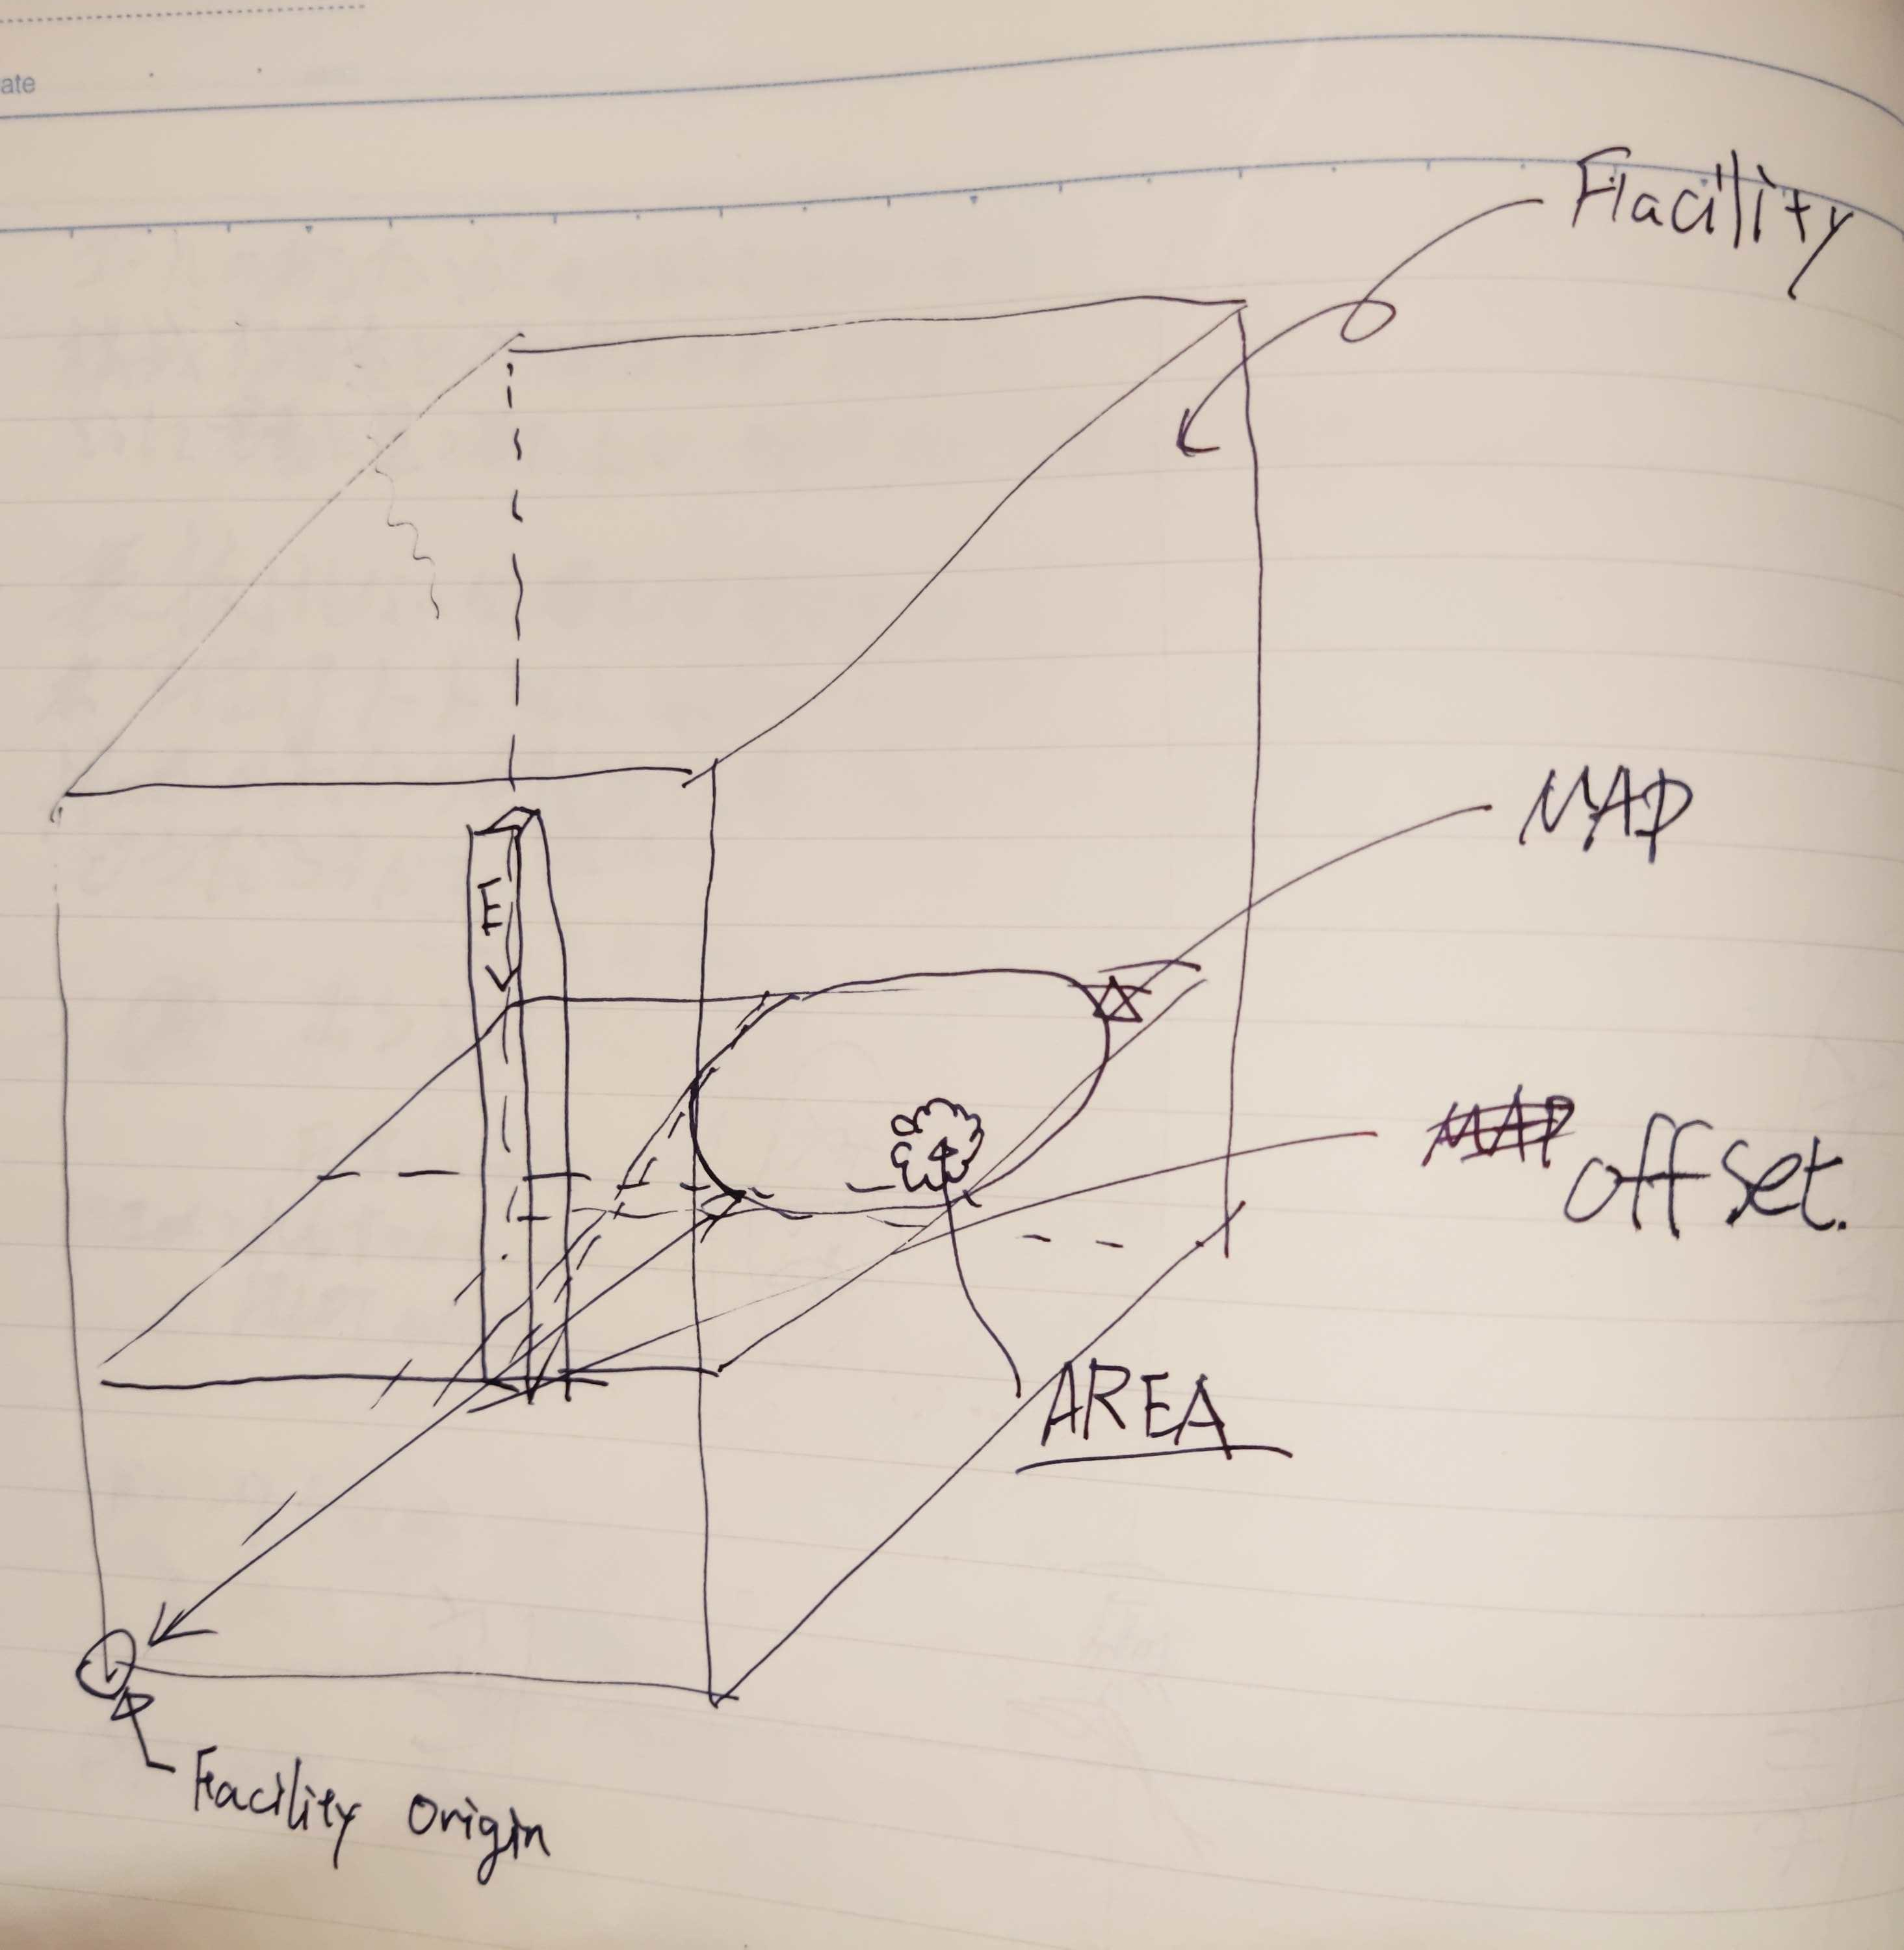 ate
Flacility
MAP
EV
MAP
offset.
AREA
Facility origin